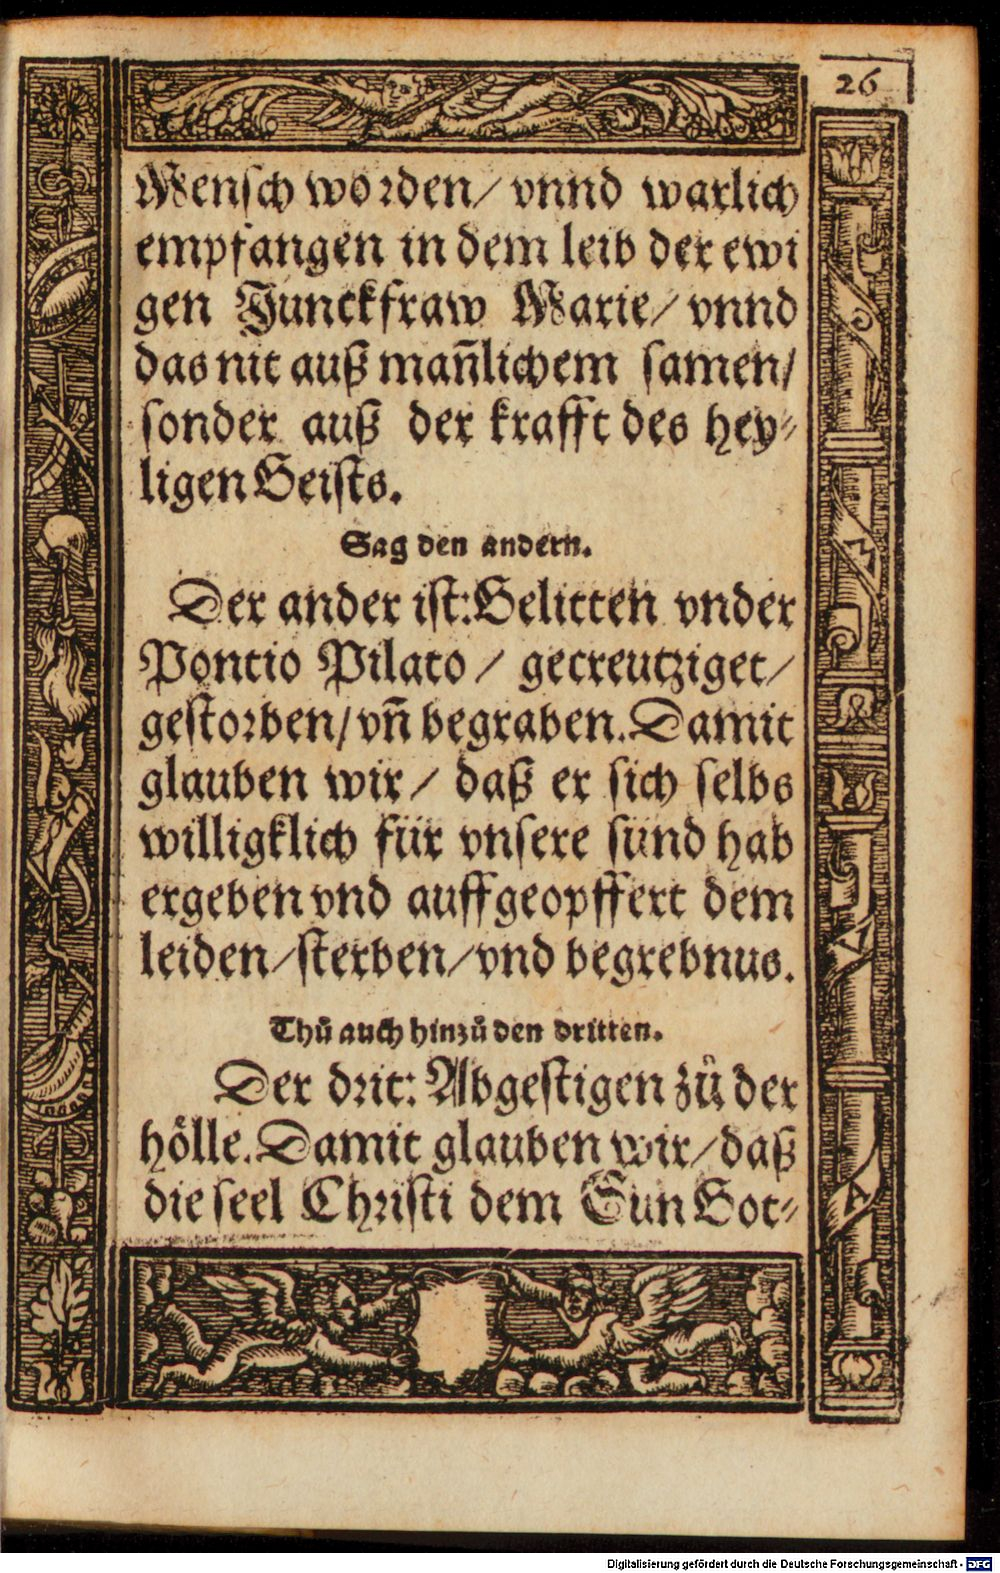 26
Mensch worden/ vnnd warlich
empfangen in dem leib der ewi
gen Junckfraw Marie/ vnnd
das nit auß mañlichem samen/
sonder auß der krafft des hey-
ligen Geists.
Sag den andern.
Der ander ist: Gelitten vnder
Pontio Pilato / gecreutziget/
gestorben/ vñ begraben. Damit
glauben wir/ daß er sich selbs
willigklich für vnsere sünd hab
ergeben vnd auffgeopffert dem
leiden/ sterben/ vnd begrebnus.
Thů auch hinzů den dritten.
Der drit: Abgestigen zů der
hölle. Damit glauben wir/ daß
die seel Christi dem Sun Got-
Digitalisierung gefördert durch die Deutsche Forschungsgemeinschaft - DFG